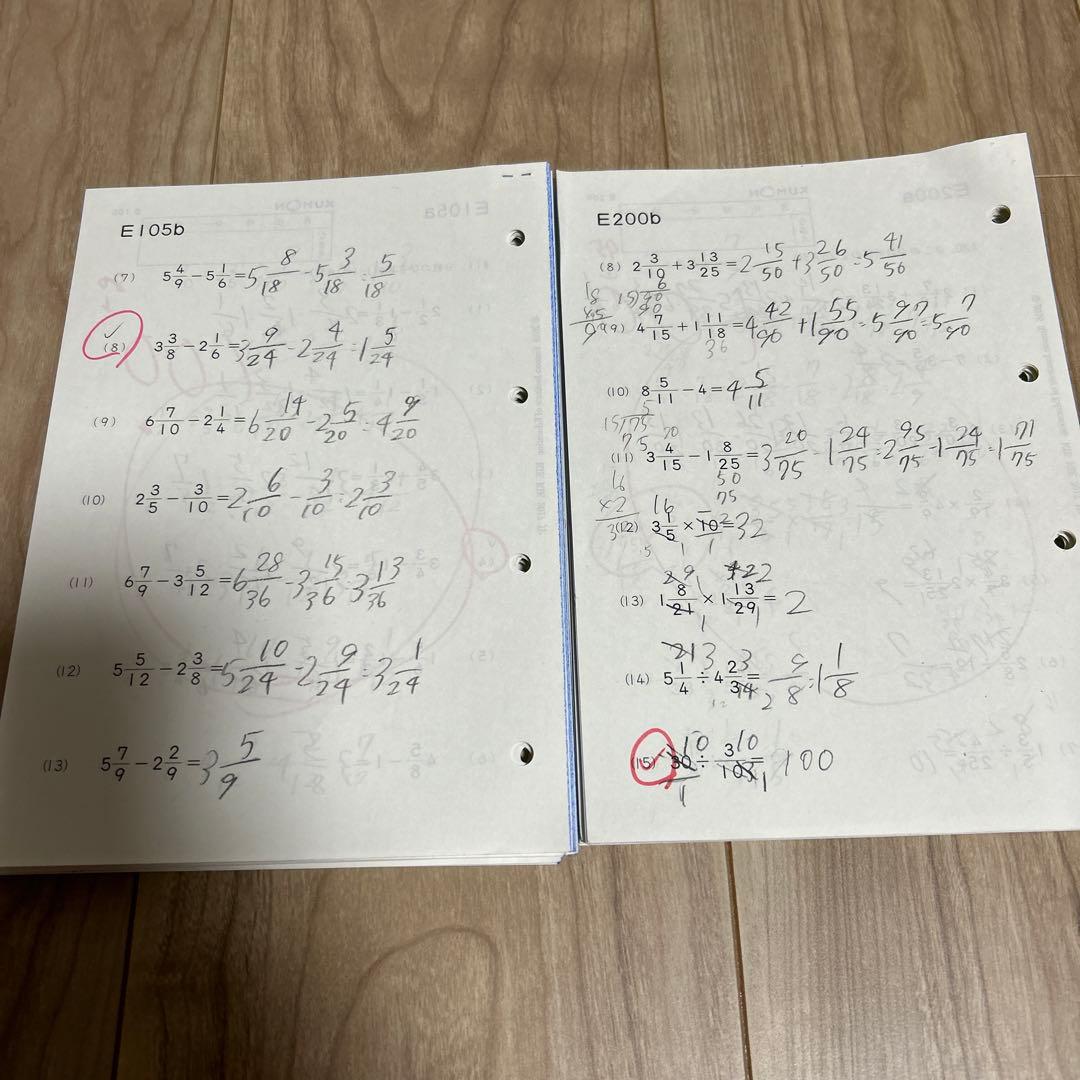 E105b
(7) 5 4/9 − 5 1/6 = 5 8/18 − 5 3/18 = 5/18
✓
(8) 3 3/8 − 2 1/6 = 3 9/24 − 2 4/24 = 1 5/24
(9) 6 7/10 − 2 1/4 = 6 14/20 − 2 5/20 = 4 9/20
(10) 2 3/5 − 3/10 = 2 6/10 − 3/10 = 2 3/10
(11) 6 7/9 − 3 5/12 = 6 28/36 − 3 15/36 = 3 13/36
(12) 5 5/12 − 2 3/8 = 5 10/24 − 2 9/24 = 3 1/24
(13) 5 7/9 − 2 2/9 = 3 5/9
E200b
(8) 2 3/10 + 3 13/25 = 2 15/50 + 3 26/50 = 5 41/50
(9) 4 7/15 + 1 11/18 = 4 42/90 + 1 55/90 = 5 97/90 = 5 7/90
36
(10) 8 5/11 − 4 = 4 5/11
(11) 3 4/15 − 1 8/25 = 3 20/75 − 1 24/75 = 2 95/75 − 1 24/75 = 1 71/75
50
75
16
×2
(12) 3 1/5 × 10 = 32
(13) 1 8/21 × 1 13/29 = 2
(14) 5 1/4 ÷ 4 2/3 = 9/8 = 1 1/8
(15) 30 ÷ 3/10 = 100